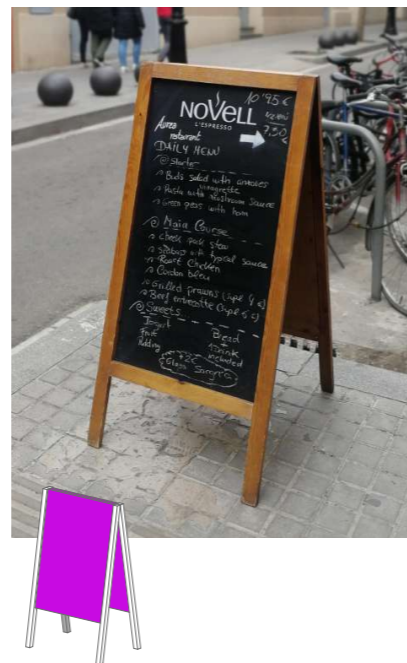 10'95 €
NOVELL
L'ESPRESSO
MENU
7,50
€
restaurant
DAILY MENU
Starter
salad with anchovies
Vinagrette
Pasta with Mushroom Sauce
Green peas with ham
Main Course
cheek pork stew
with typical sauce
Roast Chicken
Cordon bleu
Grilled prawns (supl 4 €)
Beef entrecotte (supl 5 €)
Sweets
Yogurt
Fruit
Pudding
Bread
+
Drink
included
+2€
Glass Sangria